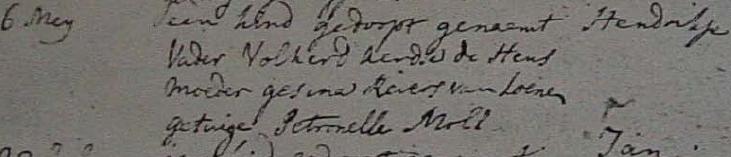 6 Mey een kind gedoopt genaemt Hendrikje
Vader Volkerd de Heus
Moeder gesina Reiers van Loenen
getuige Petronella Moll
Jan